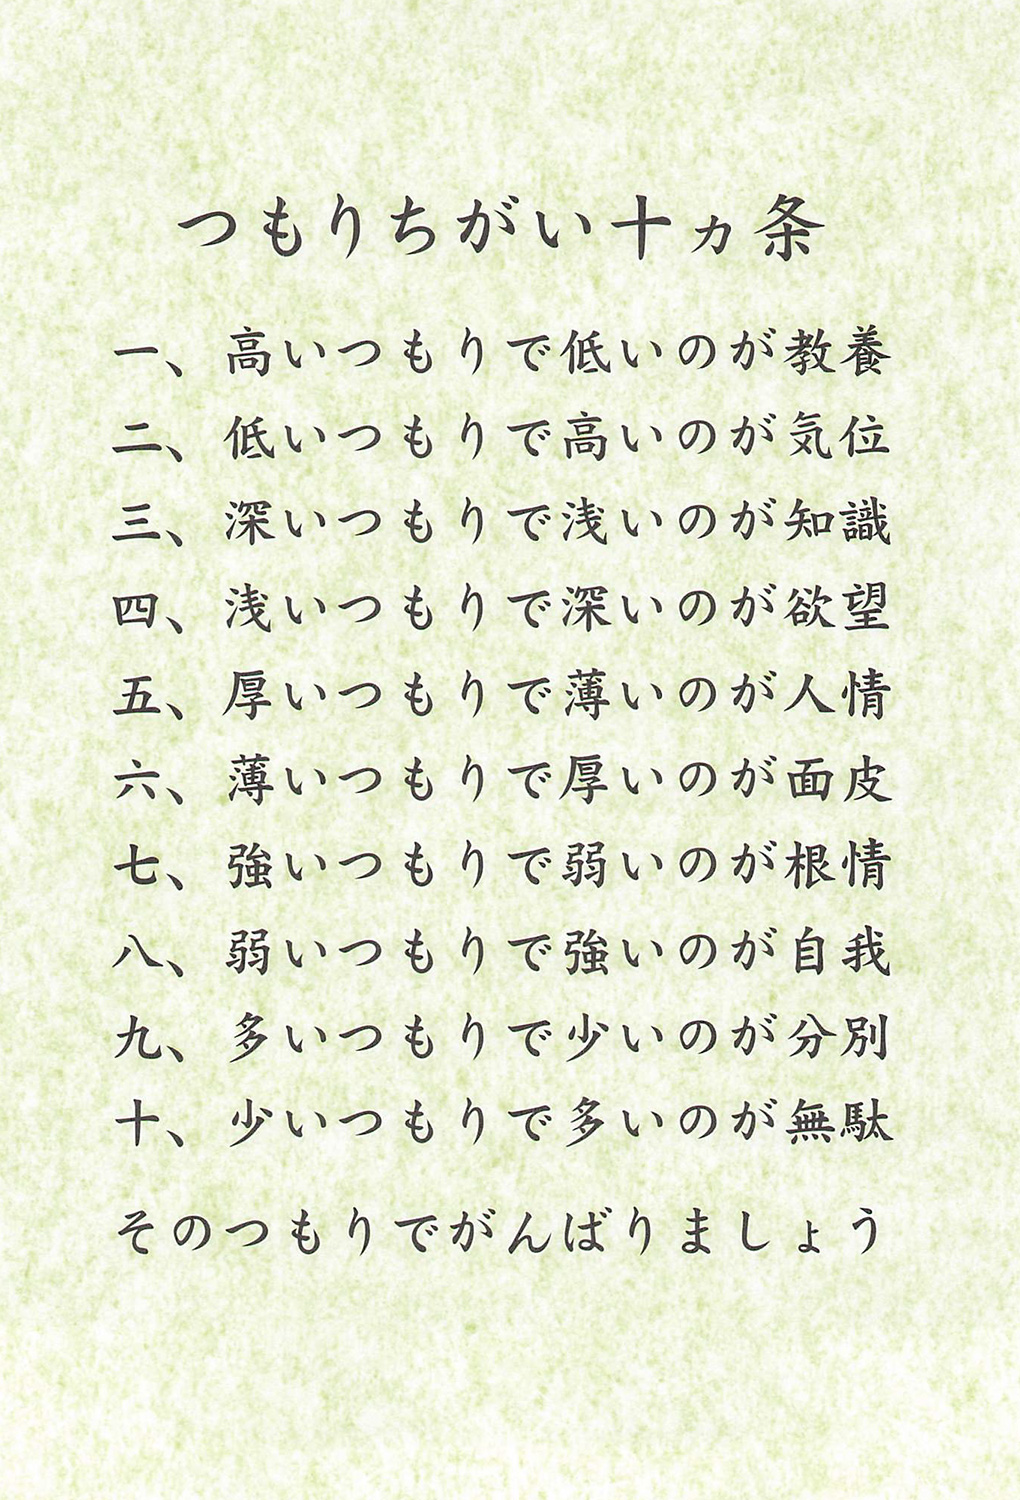 つもりちがい十ヵ条
一、高いつもりで低いのが教養
二、低いつもりで高いのが気位
三、深いつもりで浅いのが知識
四、浅いつもりで深いのが欲望
五、厚いつもりで薄いのが人情
六、薄いつもりで厚いのが面皮
七、強いつもりで弱いのが根情
八、弱いつもりで強いのが自我
九、多いつもりで少いのが分別
十、少いつもりで多いのが無駄
そのつもりでがんばりましょう